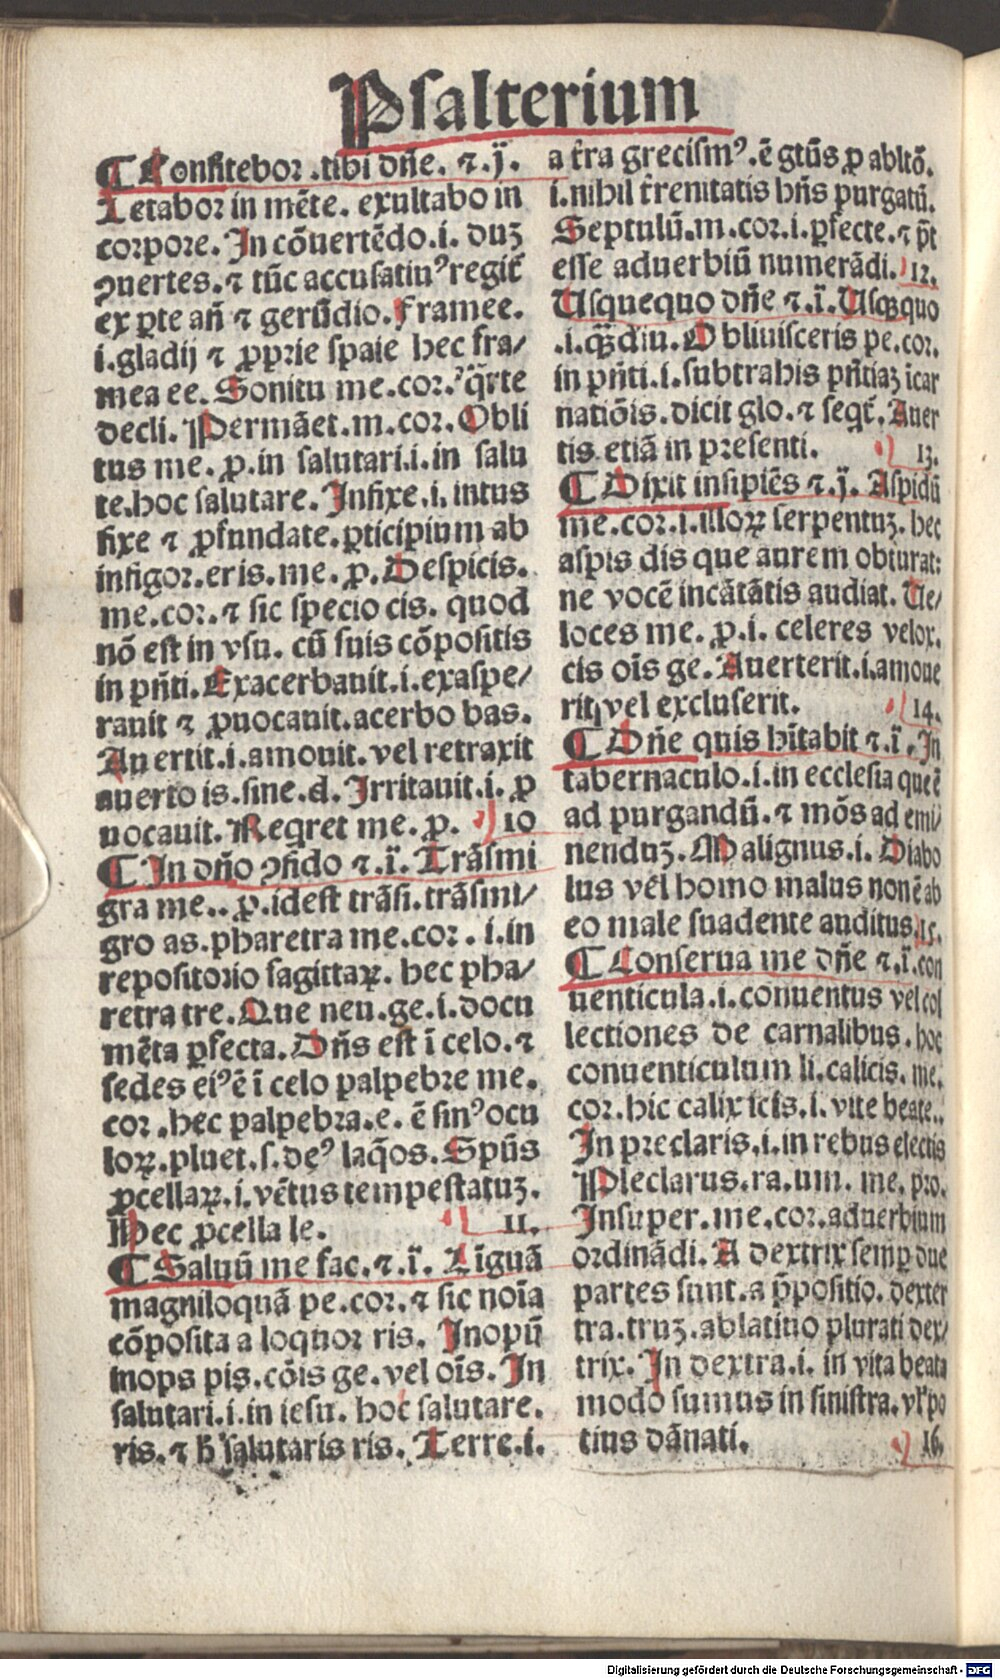 Psalterium
¶ Confitebor .tibi dñe. ⁊.ij.
Letabor in mēte. exultabo in
corpore. In cōuertēdo.i. duꝫ
ꝯuertes.⁊ tūc accusatiuꝰ regit̄
ex ꝑte añ ⁊ gerūdio. Framee.
i.gladij ⁊ ꝓprie spaie hec fra/
mea ee. Sonitu me.cor.ꝰ q̈rte
decli. Permāet.m.cor. Obli
tus me. ꝓ.in salutari.i.in salu
te.hoc salutare. Infixe.i. intus
fixe ⁊ ꝓfundate.ꝑticipium ab
infigor.eris.me. ꝓ. Despicis.
me.cor.⁊ sic specio cis. quod
nō est in vsu. cū suis cōpositis
in pñti. Exacerbauit.i.exaspe/
rauit ⁊ ꝓuocauit.acerbo bas.
Auertit.i.amouit.vel retraxit
auerto is.sine.d. Irritauit.i. ꝓ
uocauit. Reqret me. ꝓ. 10
¶ In dño ꝯfido ⁊.ï. Trāsmi
gra me.. ꝓ.idest trāsi.trāsmi/
gro as.pharetra me.cor. i.in
repositorio sagittaꝝ. hec pha/
retra tre. Que neu.ge.i.docu
mēta ꝑfecta. Dñs est ī celo.⁊
sedes eiꝰ ē ī celo palpebre me.
cor.hec palpebra.e. ē sinꝰ ocu
loꝝ.pluet.s.deꝰ laq̄os. Spūs
ꝓcellaꝝ.i.vētus tempestatuꝫ.
Hec ꝓcella le. 11.
¶ Saluū me fac.⁊.ï. Līguā
magniloquā pe.cor.⁊ sic noīa
cōposita a loquor ris. Inopū
inops pis.cōis ge.vel oīs. In
salutari.i.in iesu. hoc salutare.
ris.⁊ h̄ salutaris ris. Terre.i.
a t̄ra grecismꝰ.ē gtūs ꝓ abltō.
i.nihil t̄renitatis hñs purgatū.
Septulū.m.cor.i.ꝑfecte.⁊ p̄t
esse aduerbiū numerādi. 12.
Usquequo dñe ⁊.ï. Usqꝫquo
.i.qꝫdiu. Obliuisceris pe.cor.
in pñti.i.subtrahis pñtiaꝫ īcar
natiōis.dicit glo.⁊ seqt̄. Auer
tis etiā in presenti. 13.
¶ Dixit insipiēs ⁊.ij. Aspidū
me.cor.i.illoꝝ serpentuꝫ. hec
aspis dis que aurem obturat:
ne vocē incātātis audiat. Ue/
loces me. ꝓ.i. celeres velox.
cis oīs ge. Auerterit.i.amoue
rit vel excluserit. 14.
¶ Dñe quis hītabit ⁊.ï. In
tabernaculo.i.in ecclesia que ē
ad purgandū.⁊ mōs ad emi/
nenduꝫ. Malignus.i. Diabo
lus vel homo malus non ē ab
eo male suadente auditus. 15.
¶ Conserua me dñe ⁊.ï. con
uenticula.i.conuentus vel col
lectiones de carnalibus. hoc
conuenticulum li.calicis. me.
cor.hic calix icis.i. vite beate..
In preclaris.i.in rebus electis
Pleclarus.ra.um. me. pro.
Insuper.me.cor.aduerbium
ordinādi. A dextrix semꝑ due
partes sunt.a p̄positio. dexter
tra.truꝫ.ablatiuo plurati dex/
trix. In dextra.i. in vita beata
modo sumus in sinistra. vl' po
tius dānati. 16.
Digitalisierung gefördert durch die Deutsche Forschungsgemeinschaft - DFG